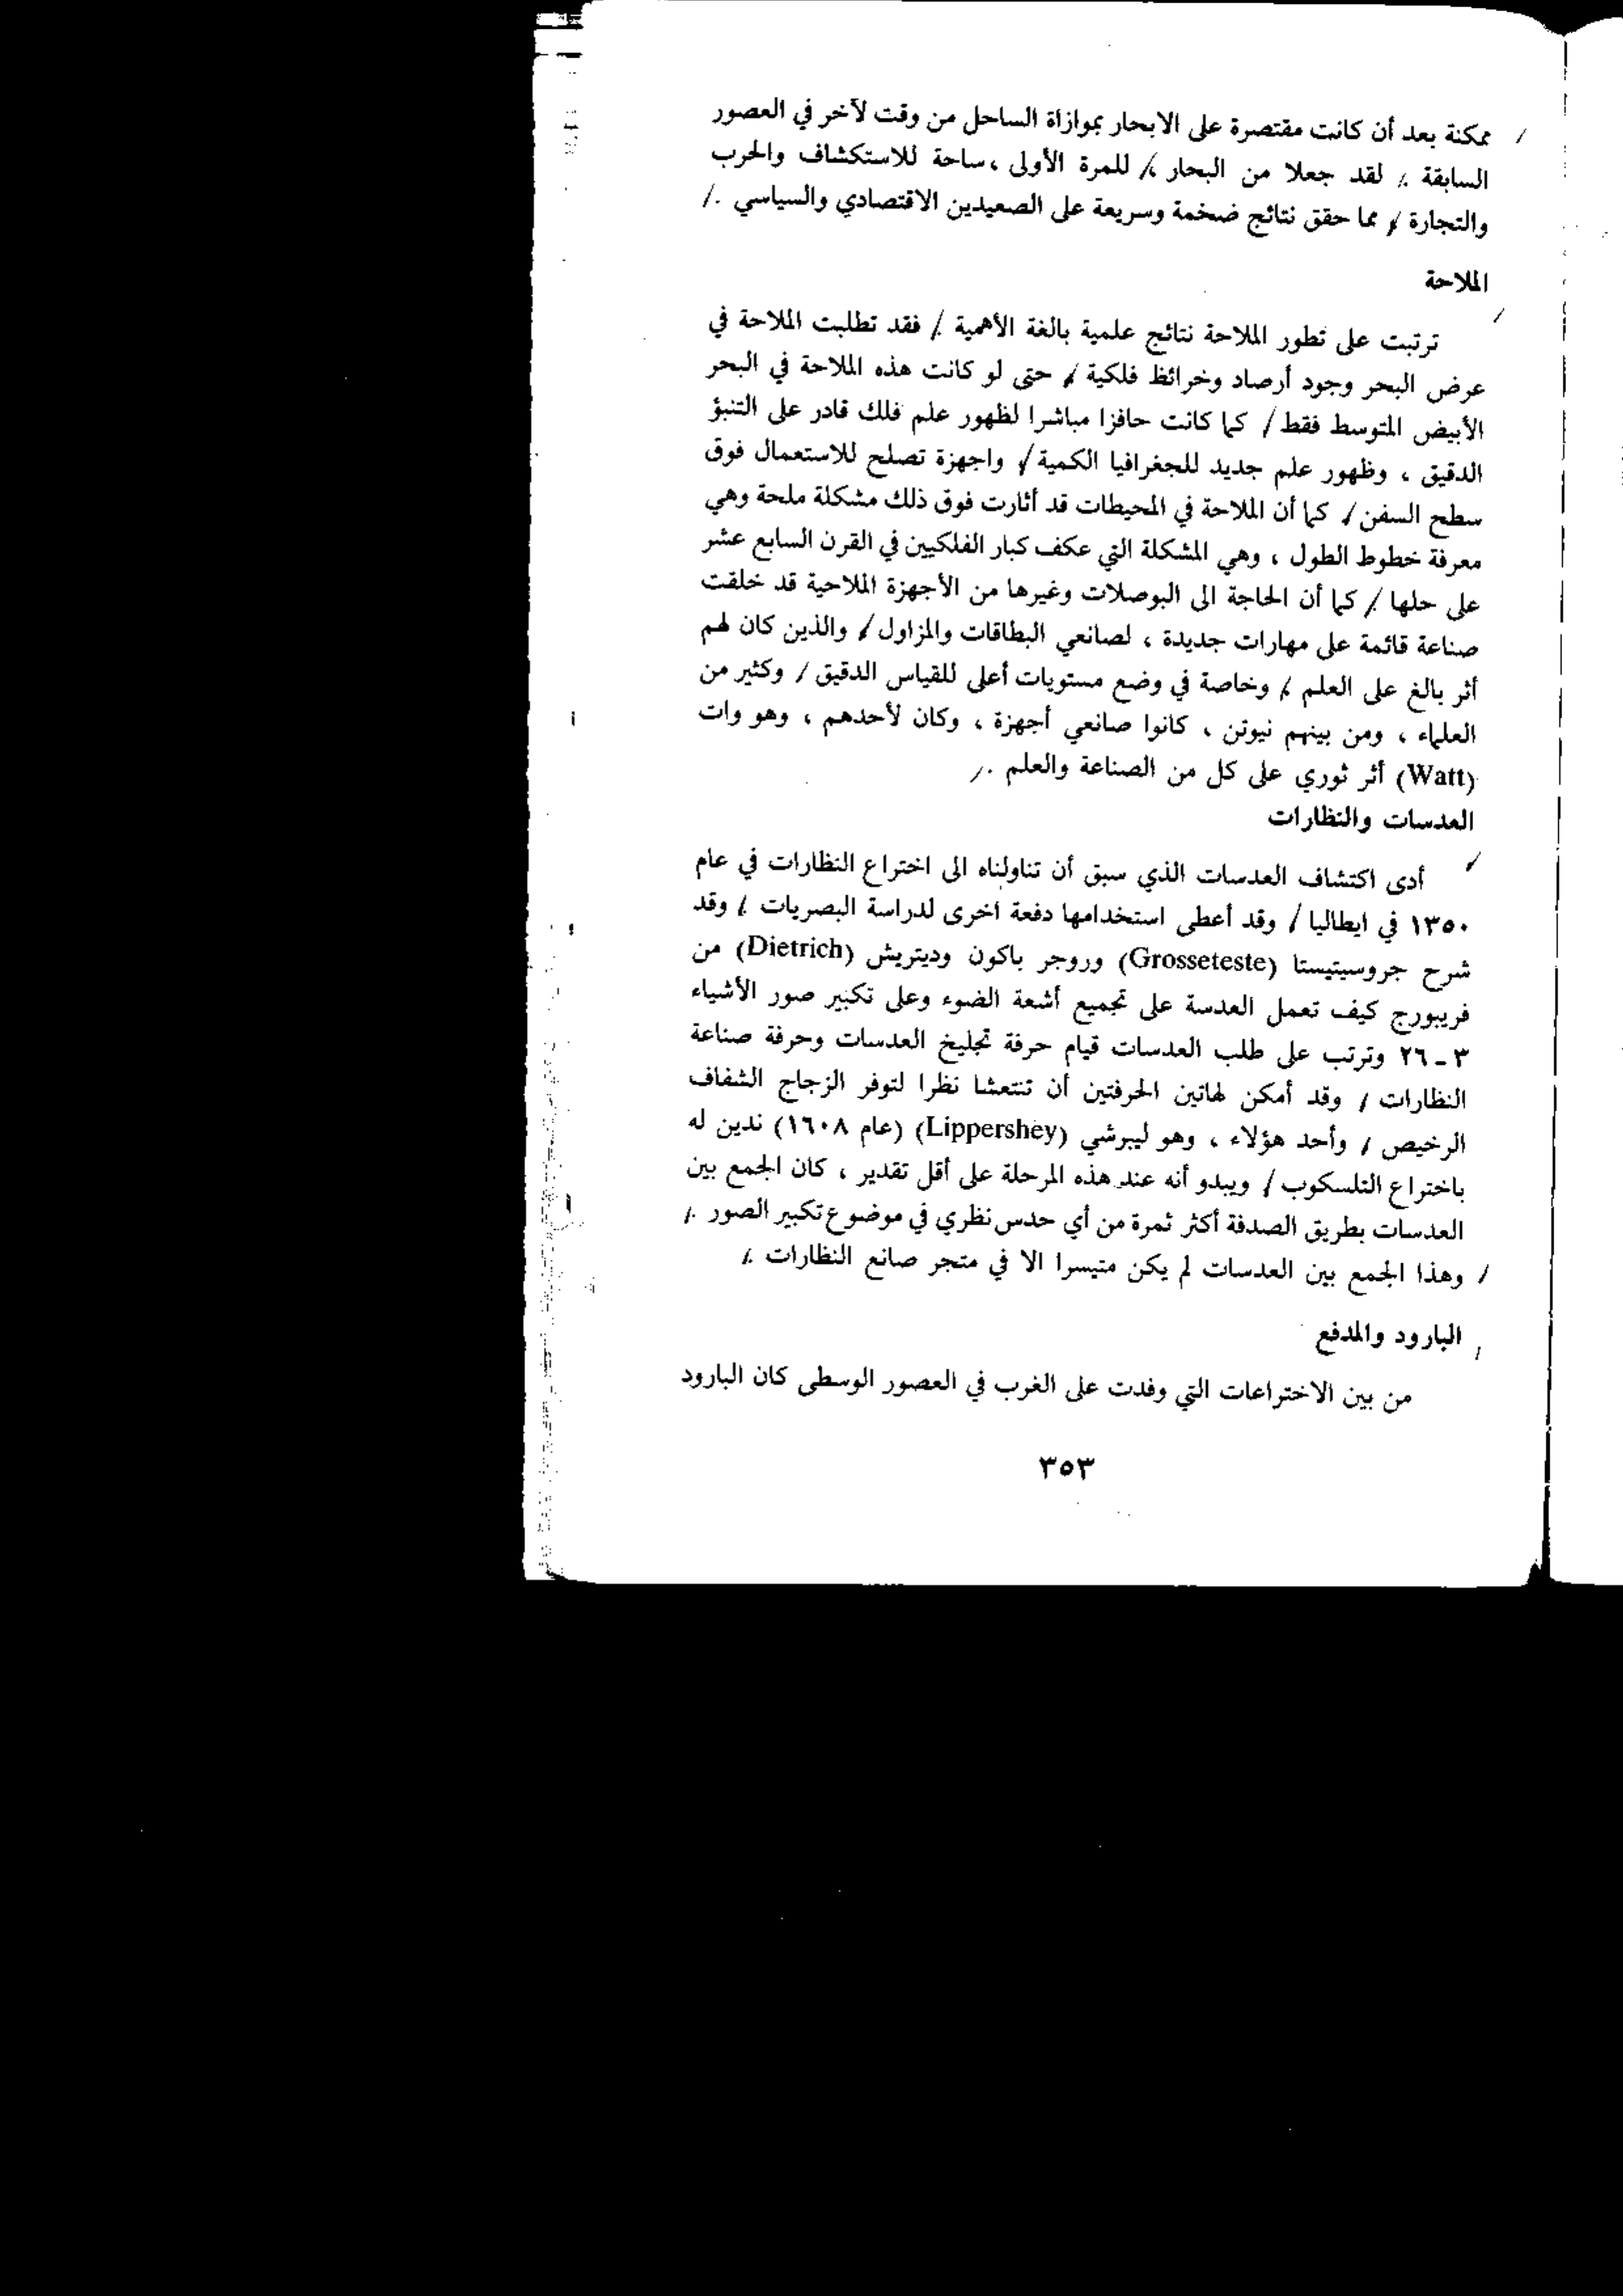 ممكنة بعد أن كانت مقتصرة على الابحار بموازاة الساحل من وقت لآخر في العصور
السابقة . لقد جعلا من البحار ، للمرة الأولى ، ساحة للاستكشاف والحرب
والتجارة ، مما حقق نتائج ضخمة وسريعة على الصعيدين الاقتصادي والسياسي .
الملاحة
ترتبت على تطور الملاحة نتائج علمية بالغة الأهمية . فقد تطلبت الملاحة في
عرض البحر وجود أرصاد وخرائظ فلكية ، حتى لو كانت هذه الملاحة في البحر
الأبيض المتوسط فقط / كما كانت حافزا مباشرا لظهور علم فلك قادر على التنبؤ
الدقيق ، وظهور علم جديد للجغرافيا الكمية ، واجهزة تصلح للاستعمال فوق
سطح السفن . كما أن الملاحة في المحيطات قد أثارت فوق ذلك مشكلة ملحة وهي
معرفة خطوط الطول ، وهي المشكلة التي عكف كبار الفلكيين في القرن السابع عشر
على حلها . كما أن الحاجة الى البوصلات وغيرها من الأجهزة الملاحية قد خلقت
صناعة قائمة على مهارات جديدة ، لصانعي البطاقات والمزاول ، والذين كان لهم
أثر بالغ على العلم ، وخاصة في وضع مستويات أعلى للقياس الدقيق / وكثير من
العلماء ، ومن بينهم نيوتن ، كانوا صانعي أجهزة ، وكان لأحدهم ، وهو وات
(Watt) أثر ثوري على كل من الصناعة والعلم .
العدسات والنظارات
أدى اكتشاف العدسات الذي سبق أن تناولناه الى اختراع النظارات في عام
١٣٥٠ في ايطاليا / وقد أعطى استخدامها دفعة اخرى لدراسة البصريات . وقد
شرح جروسيتيستا (Grosseteste) وروجر باكون وديتريش (Dietrich) من
فريبورج كيف تعمل العدسة على تجميع أشعة الضوء وعلى تكبير صور الأشياء
٣ - ٢٦ وترتب على طلب العدسات قيام حرفة تجليخ العدسات وحرفة صناعة
النظارات / وقد أمكن لهاتين الحرفتين أن تنتعشا نظرا لتوفر الزجاج الشفاف
الرخيص / وأحد هؤلاء ، وهو ليبرشي (Lippershey) (عام ١٦٠٨) ندين له
باختراع التلسكوب / ويبدو أنه عند هذه المرحلة على أقل تقدير ، كان الجمع بين
العدسات بطريق الصدفة أكثر ثمرة من أي حدس نظري في موضوع تكبير الصور .
وهذا الجمع بين العدسات لم يكن متيسرا الا في متجر صانع النظارات .
البارود والمدفع
من بين الاختراعات التي وفدت على الغرب في العصور الوسطى كان البارود
٣٥٣